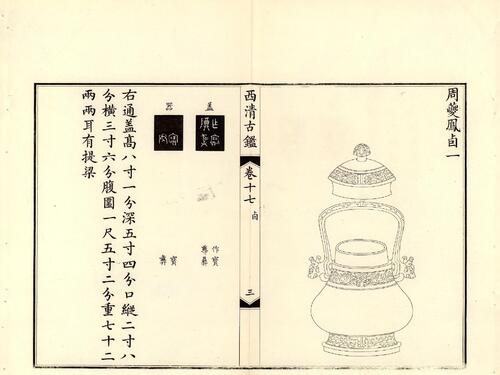 周夔鳳卣一
西清古鑑
卷十七
卣
三
蓋
器
作寶
彝
寶
彝
右通蓋高八寸一分深五寸四分口縱二寸八
分橫三寸六分腹圍一尺五寸二分重七十二
兩兩耳有提梁